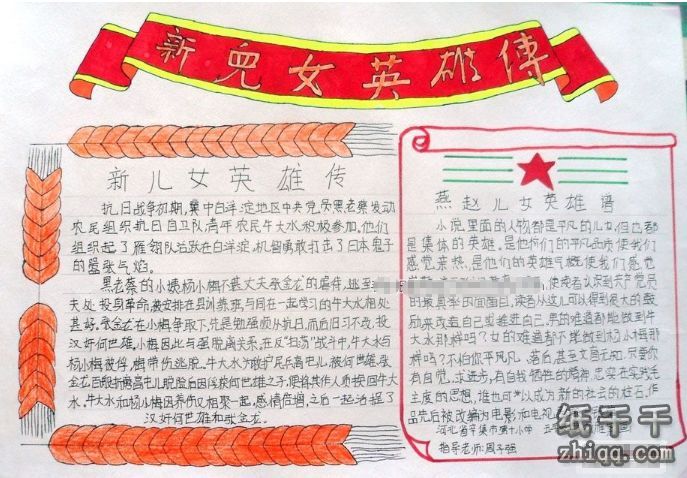 新兒女英雄傳
新儿女英雄传
抗日战争初期,冀中白洋淀地区中共党员黑老蔡发动
农民组织抗日自卫队,青年农民牛大水积极参加,他们
组织起了雁翎队活跃在白洋淀,机智勇敢打击了日本鬼子
的嚣张气焰。
黑老蔡的小姨杨小梅不甚丈夫张金龙的虐待,逃至
夫处投身革命,被安排在县训练班,与同在一起学习的牛大水相处
甚好。张金龙在小梅争取下,先是勉强顺从抗日,而后旧习不改,投
汉奸何世雄,小梅因此与强脱离关系。在反"扫荡"战斗中,牛大水与
杨小梅被俘,梅带伤逃脱。牛大水为救护民兵高屯儿,被何世雄、张
金龙百般折磨,高屯儿脱险后因俘获何世雄之子,
牛大水。牛大水和杨小梅因养伤又相聚一起,感情倍增,之后一起治擢了
汉奸何世雄和张金龙。
燕赵儿女英雄谱
小说里面的人物都是平凡的儿女,但也都
是集体的英雄。是他们的平凡品质使我们
感觉亲热,是他们的英雄气概使我们感觉
使读者认识到共产党员
的最真实的面目,读者从这儿可以得到很大的鼓
励来改造自己或推进自己。男的难道都能做到牛
大水那样吗?女的难道都不能做到杨小梅那
样吗?不怕你平凡、落后、甚至文盲无知,只要你
有自觉,求进步,有自我牺牲的精神,忠实在实践毛
主席的思想,谁也可以成为新的社会的柱石。作
品先后被改编为电影和电视
河北省辛集市第十小学
指导老师:周子强
纸牛千
zhiqq.com